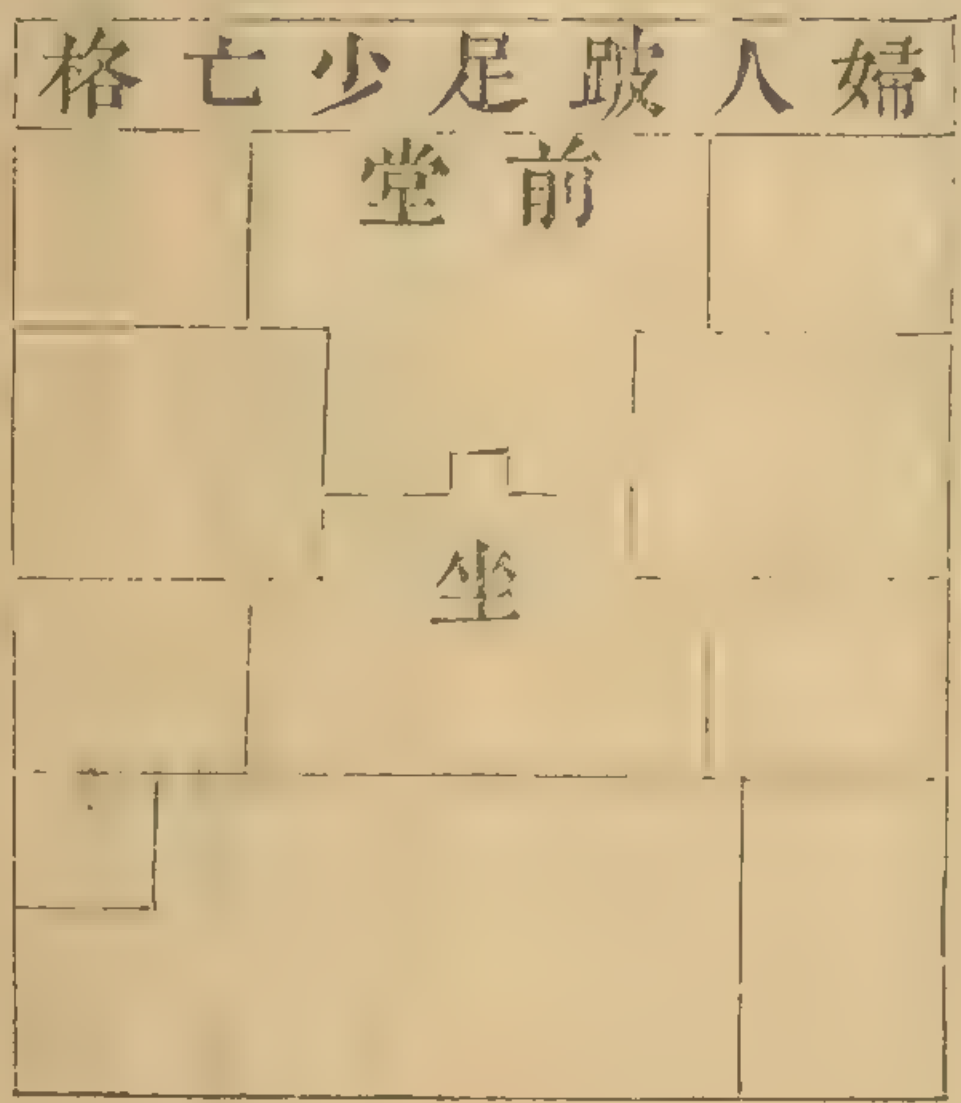 婦人跛足少亡格
前堂
坐